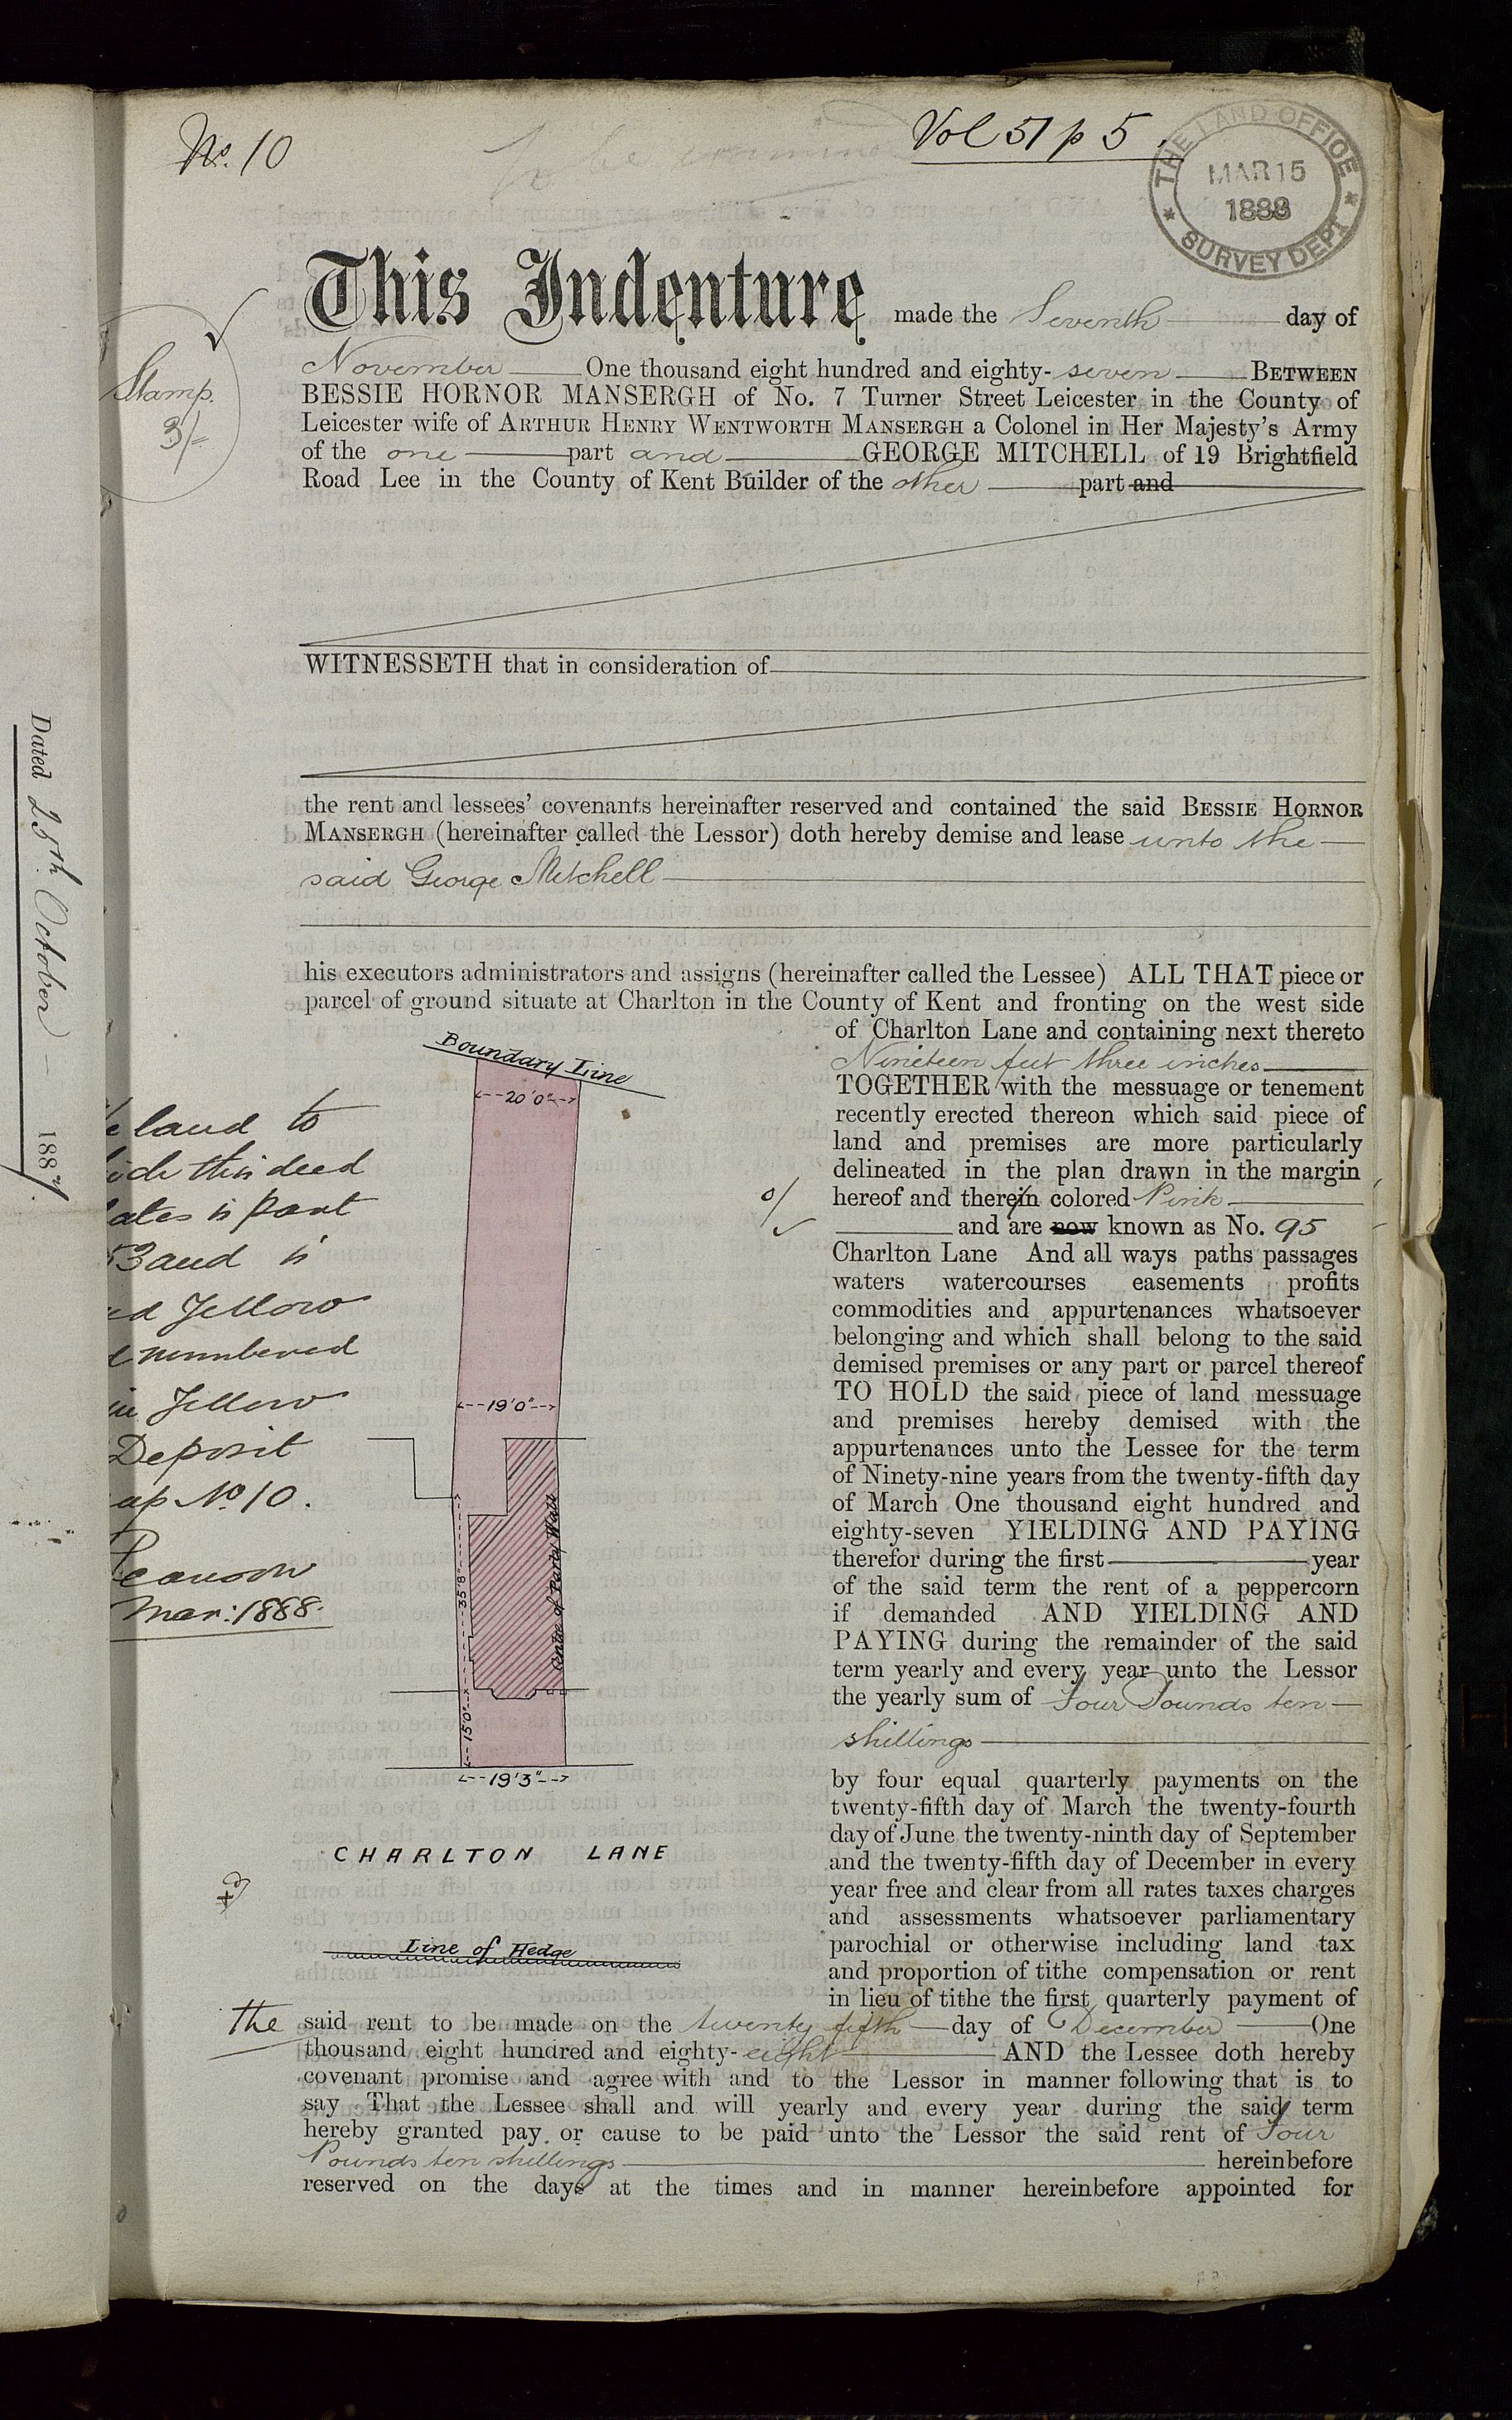 No. 10
Vol 51 p 5.
THE LAND OFFICE
MAR 15
1888
SURVEY DEPT
This Indenture made the Seventh day of
November One thousand eight hundred and eighty-seven BETWEEN
BESSIE HORNOR MANSERGH of No. 7 Turner Street Leicester in the County of
Leicester wife of ARTHUR HENRY WENTWORTH MANSERGH a Colonel in Her Majesty's Army
of the one part and GEORGE MITCHELL of 19 Brightfield
Road Lee in the County of Kent Builder of the other part and
Stamp
3/=
WITNESSETH that in consideration of
the rent and lessees' covenants hereinafter reserved and contained the said BESSIE HORNOR
MANSERGH (hereinafter called the Lessor) doth hereby demise and lease unto the
said George Mitchell
his executors administrators and assigns (hereinafter called the Lessee) ALL THAT piece or
parcel of ground situate at Charlton in the County of Kent and fronting on the west side
of Charlton Lane and containing next thereto
Nineteen feet three inches
TOGETHER with the messuage or tenement
recently erected thereon which said piece of
land and premises are more particularly
delineated in the plan drawn in the margin
hereof and therein colored Pink
and are now known as No. 95
Charlton Lane And all ways paths passages
waters watercourses easements profits
commodities and appurtenances whatsoever
belonging and which shall belong to the said
demised premises or any part or parcel thereof
TO HOLD the said piece of land messuage
and premises hereby demised with the
appurtenances unto the Lessee for the term
of Ninety-nine years from the twenty-fifth day
of March One thousand eight hundred and
eighty-seven YIELDING AND PAYING
therefor during the first year
of the said term the rent of a peppercorn
if demanded AND YIELDING AND
PAYING during the remainder of the said
term yearly and every year unto the Lessor
the yearly sum of Four Pounds ten
shillings
by four equal quarterly payments on the
twenty-fifth day of March the twenty-fourth
day of June the twenty-ninth day of September
and the twenty-fifth day of December in every
year free and clear from all rates taxes charges
and assessments whatsoever parliamentary
parochial or otherwise including land tax
and proportion of tithe compensation or rent
in lieu of tithe the first quarterly payment of
the said rent to be made on the twenty fifth day of December One
thousand eight hundred and eighty-eight AND the Lessee doth hereby
covenant promise and agree with and to the Lessor in manner following that is to
say That the Lessee shall and will yearly and every year during the said term
hereby granted pay or cause to be paid unto the Lessor the said rent of Four
Pounds ten shillings hereinbefore
reserved on the days at the times and in manner hereinbefore appointed for
Boundary Line
20'0"
19'0"
35'8"
Centre of Party Wall
15'0"
19'3"
CHARLTON LANE
Line of Hedge
land to
this deed
is part
and is
Yellow
numbered
in Yellow
Deposit
No 10.
Mar: 1888.
Dated 25th October 1887